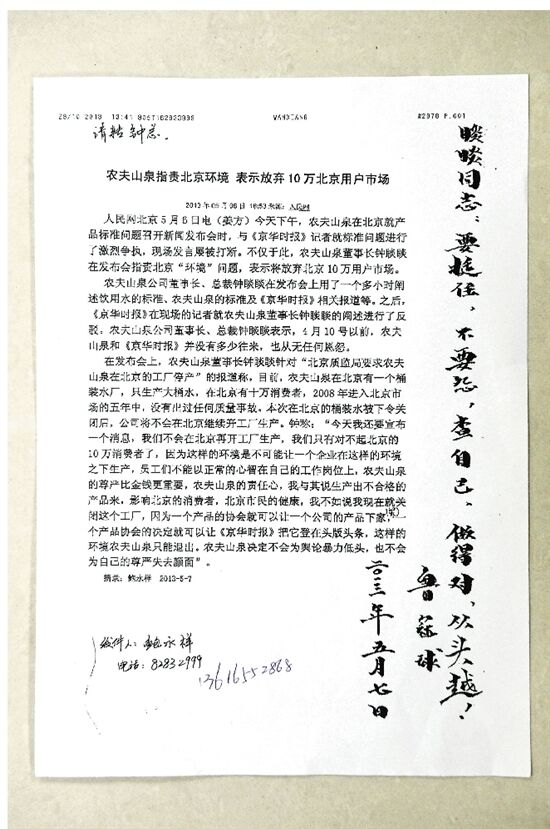 28/10 2013 13:41
WANXIANG
#2978 P.001
请转钟总.
农夫山泉指责北京环境 表示放弃 10 万北京用户市场
2013 年 05 月 06 日 16:53 来源：人民网
人民网北京 5 月 6 日电（姜方）今天下午，农夫山泉在北京就产
品标准问题召开新闻发布会时，与《京华时报》记者就标准问题进行
了激烈争执，现场发言屡被打断。不仅于此，农夫山泉董事长钟睒睒
在发布会指责北京“环境”问题，表示将放弃北京 10 万用户市场。
农夫山泉公司董事长、总裁钟睒睒在发布会上用了一个多小时阐
述饮用水的标准、农夫山泉的标准及《京华时报》相关报道等。之后，
《京华时报》在现场的记者就农夫山泉董事长钟睒睒的阐述进行了反
驳：农夫山泉公司董事长、总裁钟睒睒表示，4 月 10 号以前，农夫
山泉和《京华时报》并没有多少往来，也从无任何恩怨。
在发布会上，农夫山泉董事长钟睒睒针对“北京质监局要求农夫
山泉在北京的工厂停产”的报道称，目前，农夫山泉在北京有一个桶
装水厂，只生产大桶水，在北京有十万消费者，2008 年进入北京市
场的五年中，没有出过任何质量事故。本次在北京的桶装水被下令关
闭后，公司将不会在北京继续开工厂生产。钟称：“今天我还要宣布
一个消息，我们不会在北京再开工厂生产，我们只有对不起北京的
10 万消费者了，因为这样的环境是不可能让一个企业在这样的环境
之下生产，员工们不能以正常的心智在自己的工作岗位上，农夫山泉
的尊严比金钱更重要，农夫山泉的责任心，我与其说生产出不合格的
产品来，影响北京的消费者，北京市民的健康，我不如说我现在就关
闭这个工厂，因为一个产品的协会就可以让一个公司的产品下架，
个产品协会的决定就可以让《京华时报》把它登在头版头条，这样的
环境农夫山泉只能退出。农夫山泉决定不会为舆论暴力低头，也不会
为自己的尊严失去颜面”。
摘录：鲍永祥 2013-5-7
收件人：鲍永祥
电话：82832999
13616552868
睒睒同志：要挺住，不要怨，查自己，做得对，从头越！
鲁冠球
二〇一三年五月七日